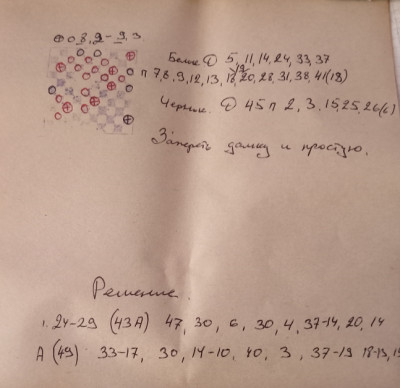 ⊕ 0 8, 2 - 9. 3
Белые Д 5, 11, 14, 24, 33, 37
19
п 7, 8, 9, 12, 13, 18, 20, 28, 31, 38, 41 (18)
Черные. Д 45 п 2, 3, 15, 25, 26 (6)
Запереть дамку и простую.
Решение.
1. 24-29 (43А) 47, 30, 6, 30, 4, 37-14, 20, 14
А (49) 33-17, 30, 14-10, 40, 3, 37-19 18-13, 19